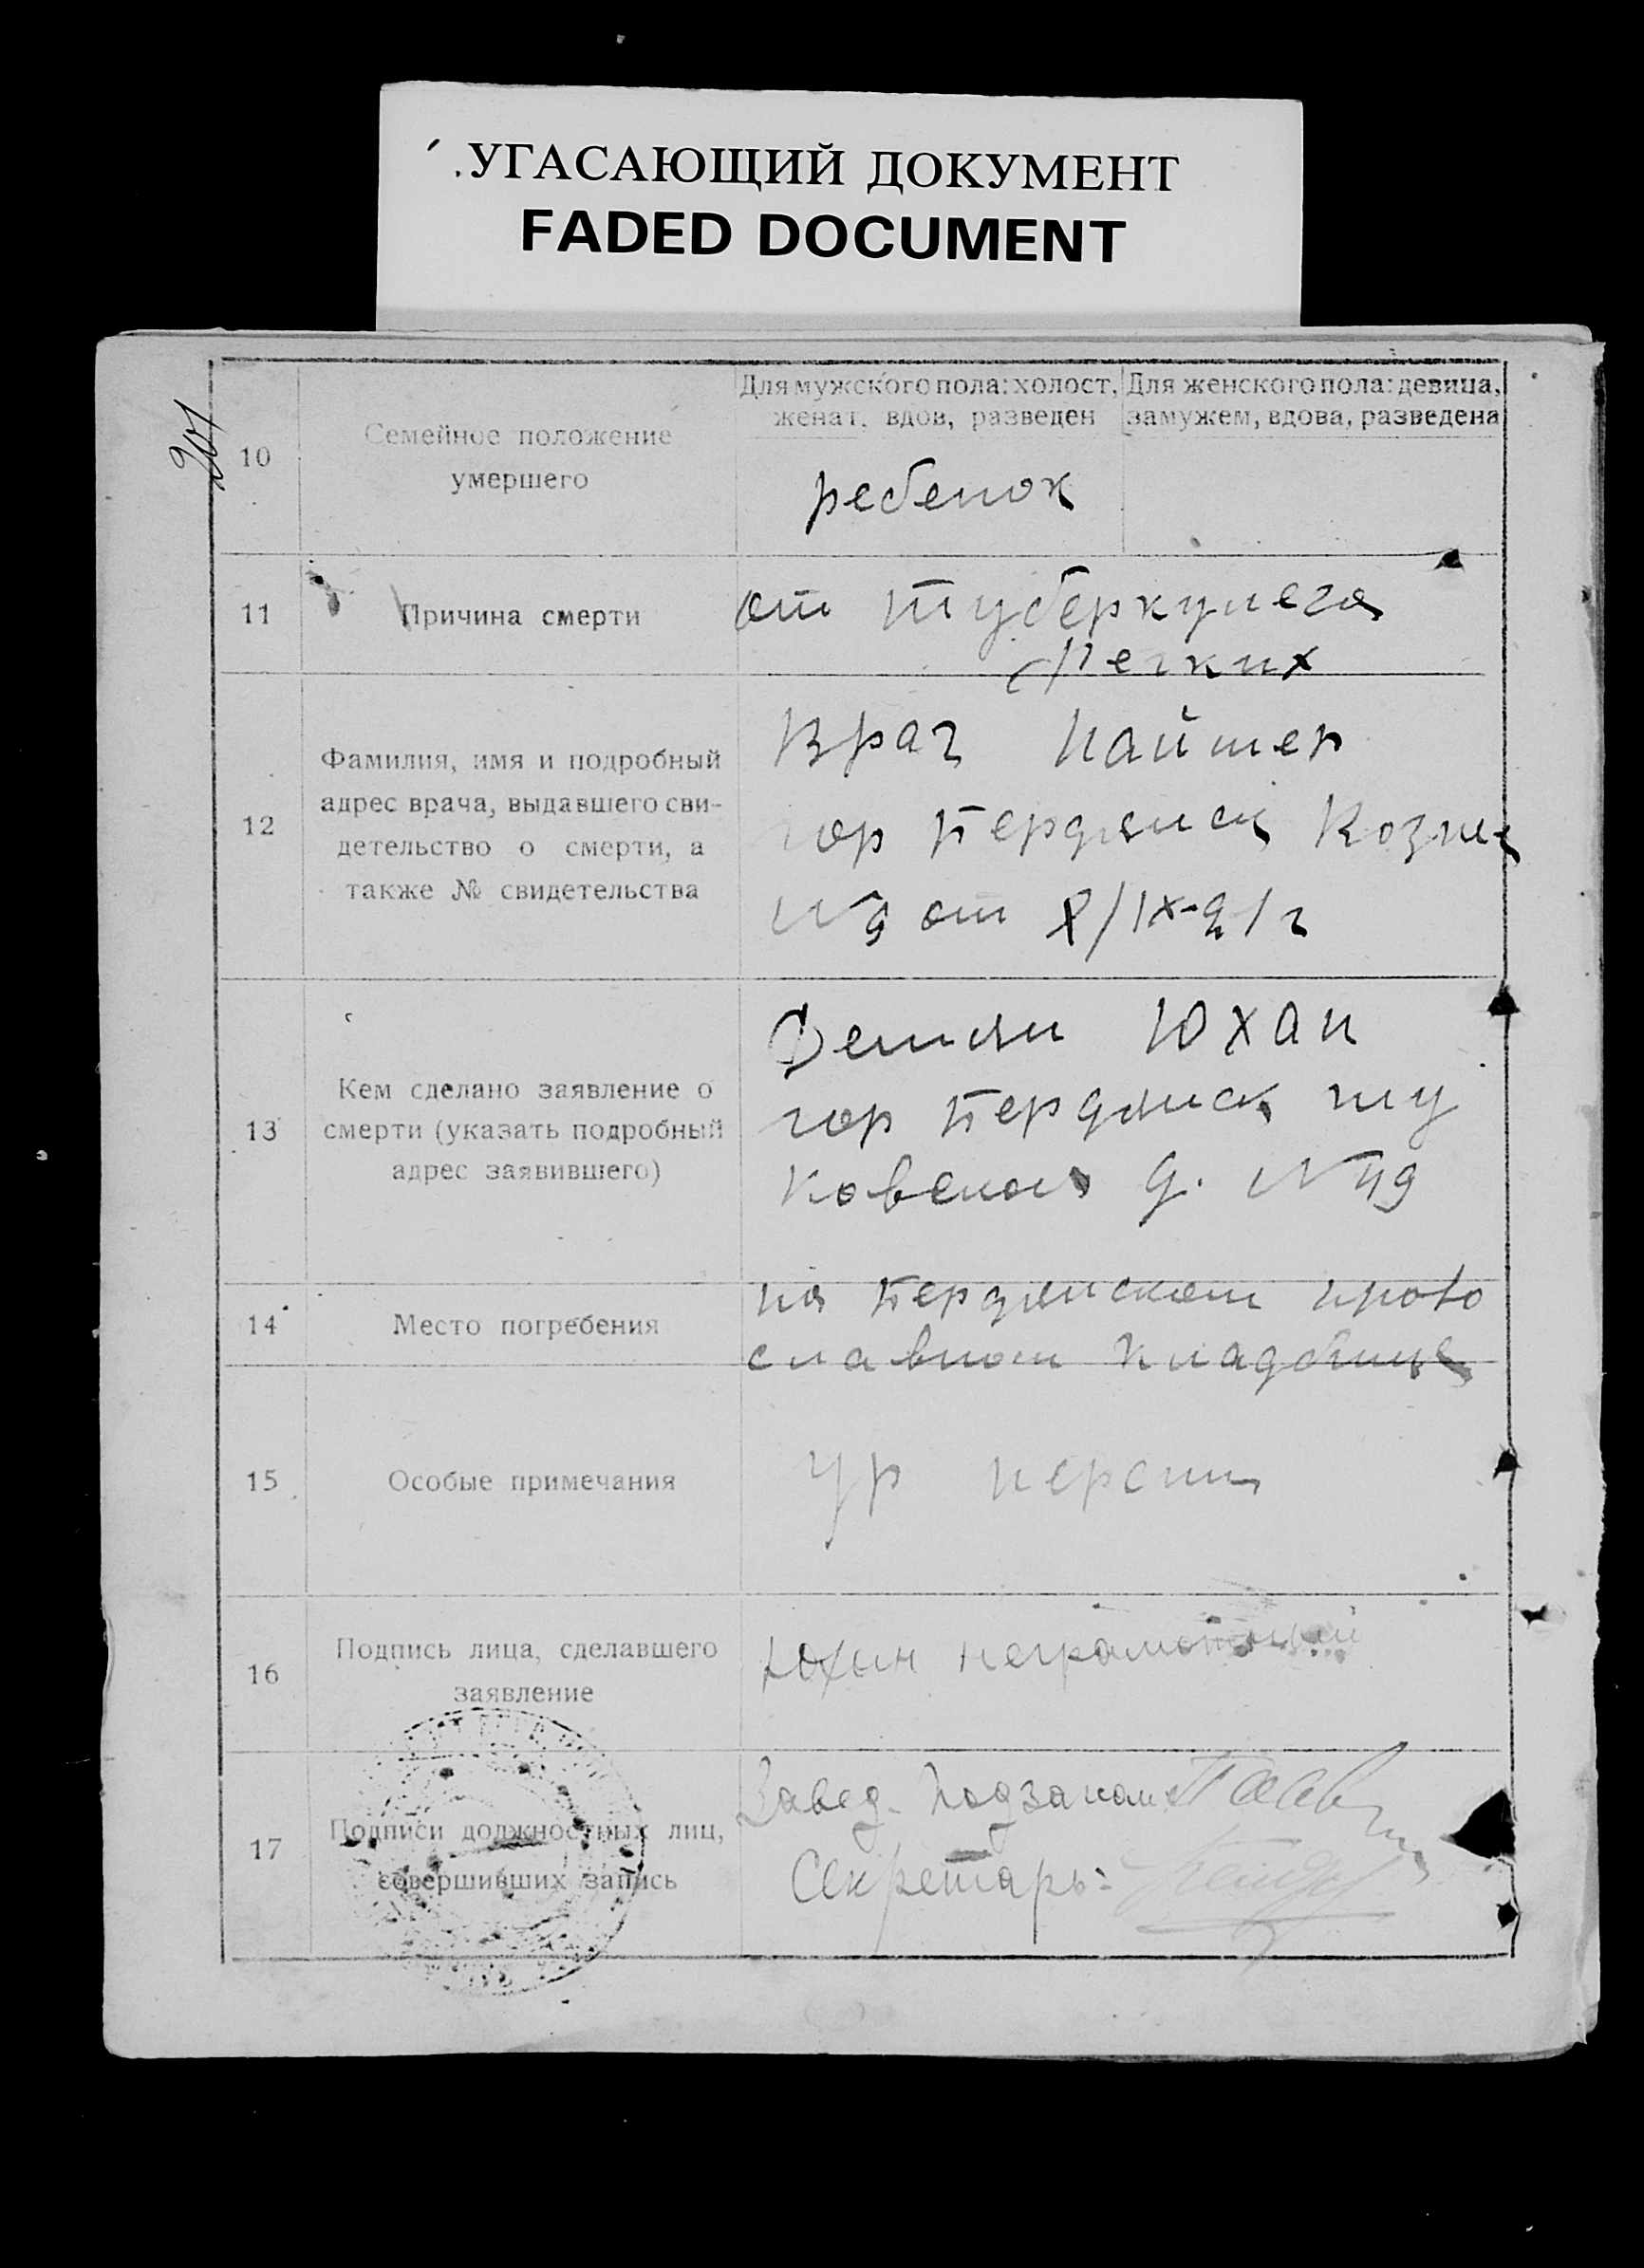 УГАСАЮЩИЙ ДОКУМЕНТ
FADED DOCUMENT
201
10
Семейное положение
умершего
Для мужского пола: холост,
женат, вдов, разведен
Для женского пола: девица,
замужем, вдова, разведена
ребенок
11
Причина смерти
от туберкулеза
легких
12
Фамилия, имя и подробный
адрес врача, выдавшего сви-
детельство о смерти, а
также № свидетельства
Врач
гор Бердянск
№ 9 от
13
Кем сделано заявление о
смерти (указать подробный
адрес заявившего)
Юхан
гор Бердянск
д. №
14
Место погребения
на Бердянском право
славном кладбище
15
Особые примечания
ур персии
16
Подпись лица, сделавшего
заявление
Юхан неграмотный
17
Подписи должностных лиц,
совершивших запись
Завед.
Секретарь: